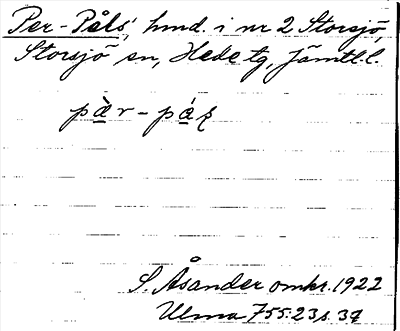 Per-Påls', hmd. i nr 2 Storsjö,
Storsjö sn, Hede tg, Jämtl. l.
pæ̀r-pá
S. Åsander omkr. 1922
Ulma 755:23 s. 37